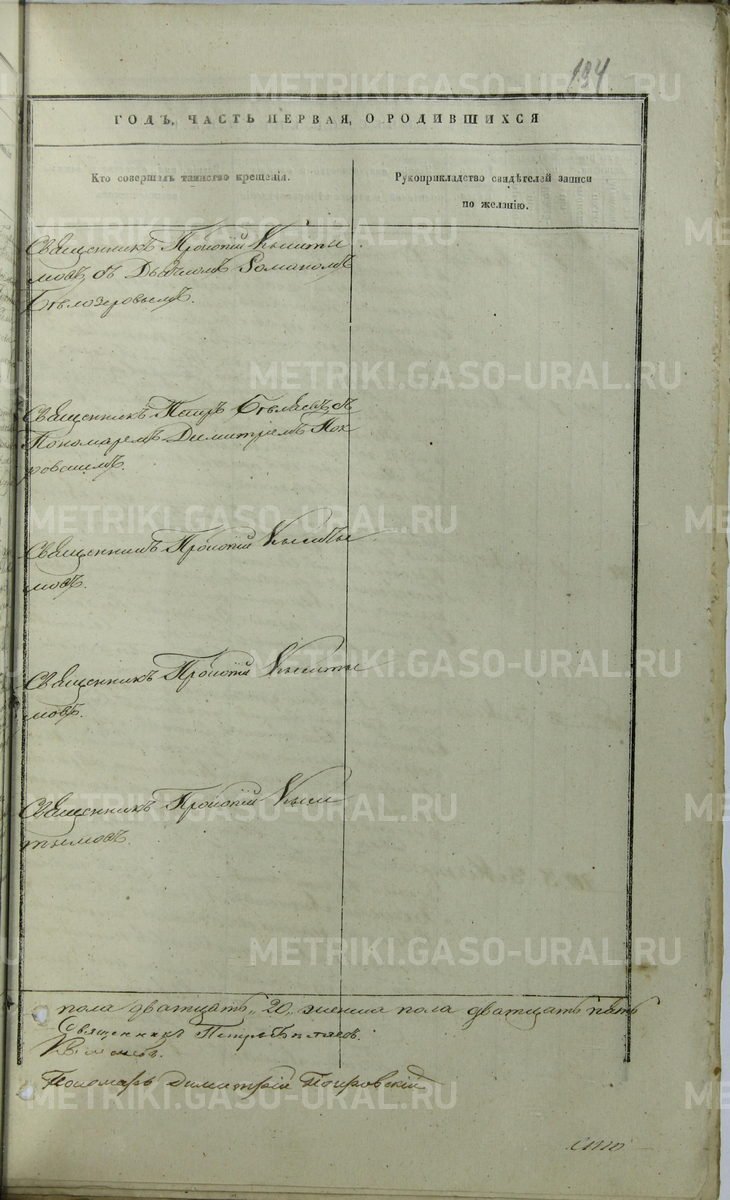 194
ГОДЪ, ЧАСТЬ ПЕРВАЯ, О РОДИВШИХСЯ
Кто совершилъ таинство крещенія.
Рукоприкладство свидѣтелей записи
по желанію.
Священникъ Прокопій Кышты
мовъ съ Дьячкомъ Романомъ
Бѣлозеровымъ.
Священникъ Петръ Бѣляевъ съ
Пономаремъ Димитріемъ Пок
ровскимъ.
Священникъ Прокопій Кышты
мовъ.
Священникъ Прокопій Кышты
мовъ.
Священникъ Прокопій Кыш
тымовъ.
пола дватцать „20„ женска пола дватцать пять
Священникъ Петръ Бѣляевъ.
Пономарь Димитрій Покровскій
METRIKI.GASO-URAL.RU